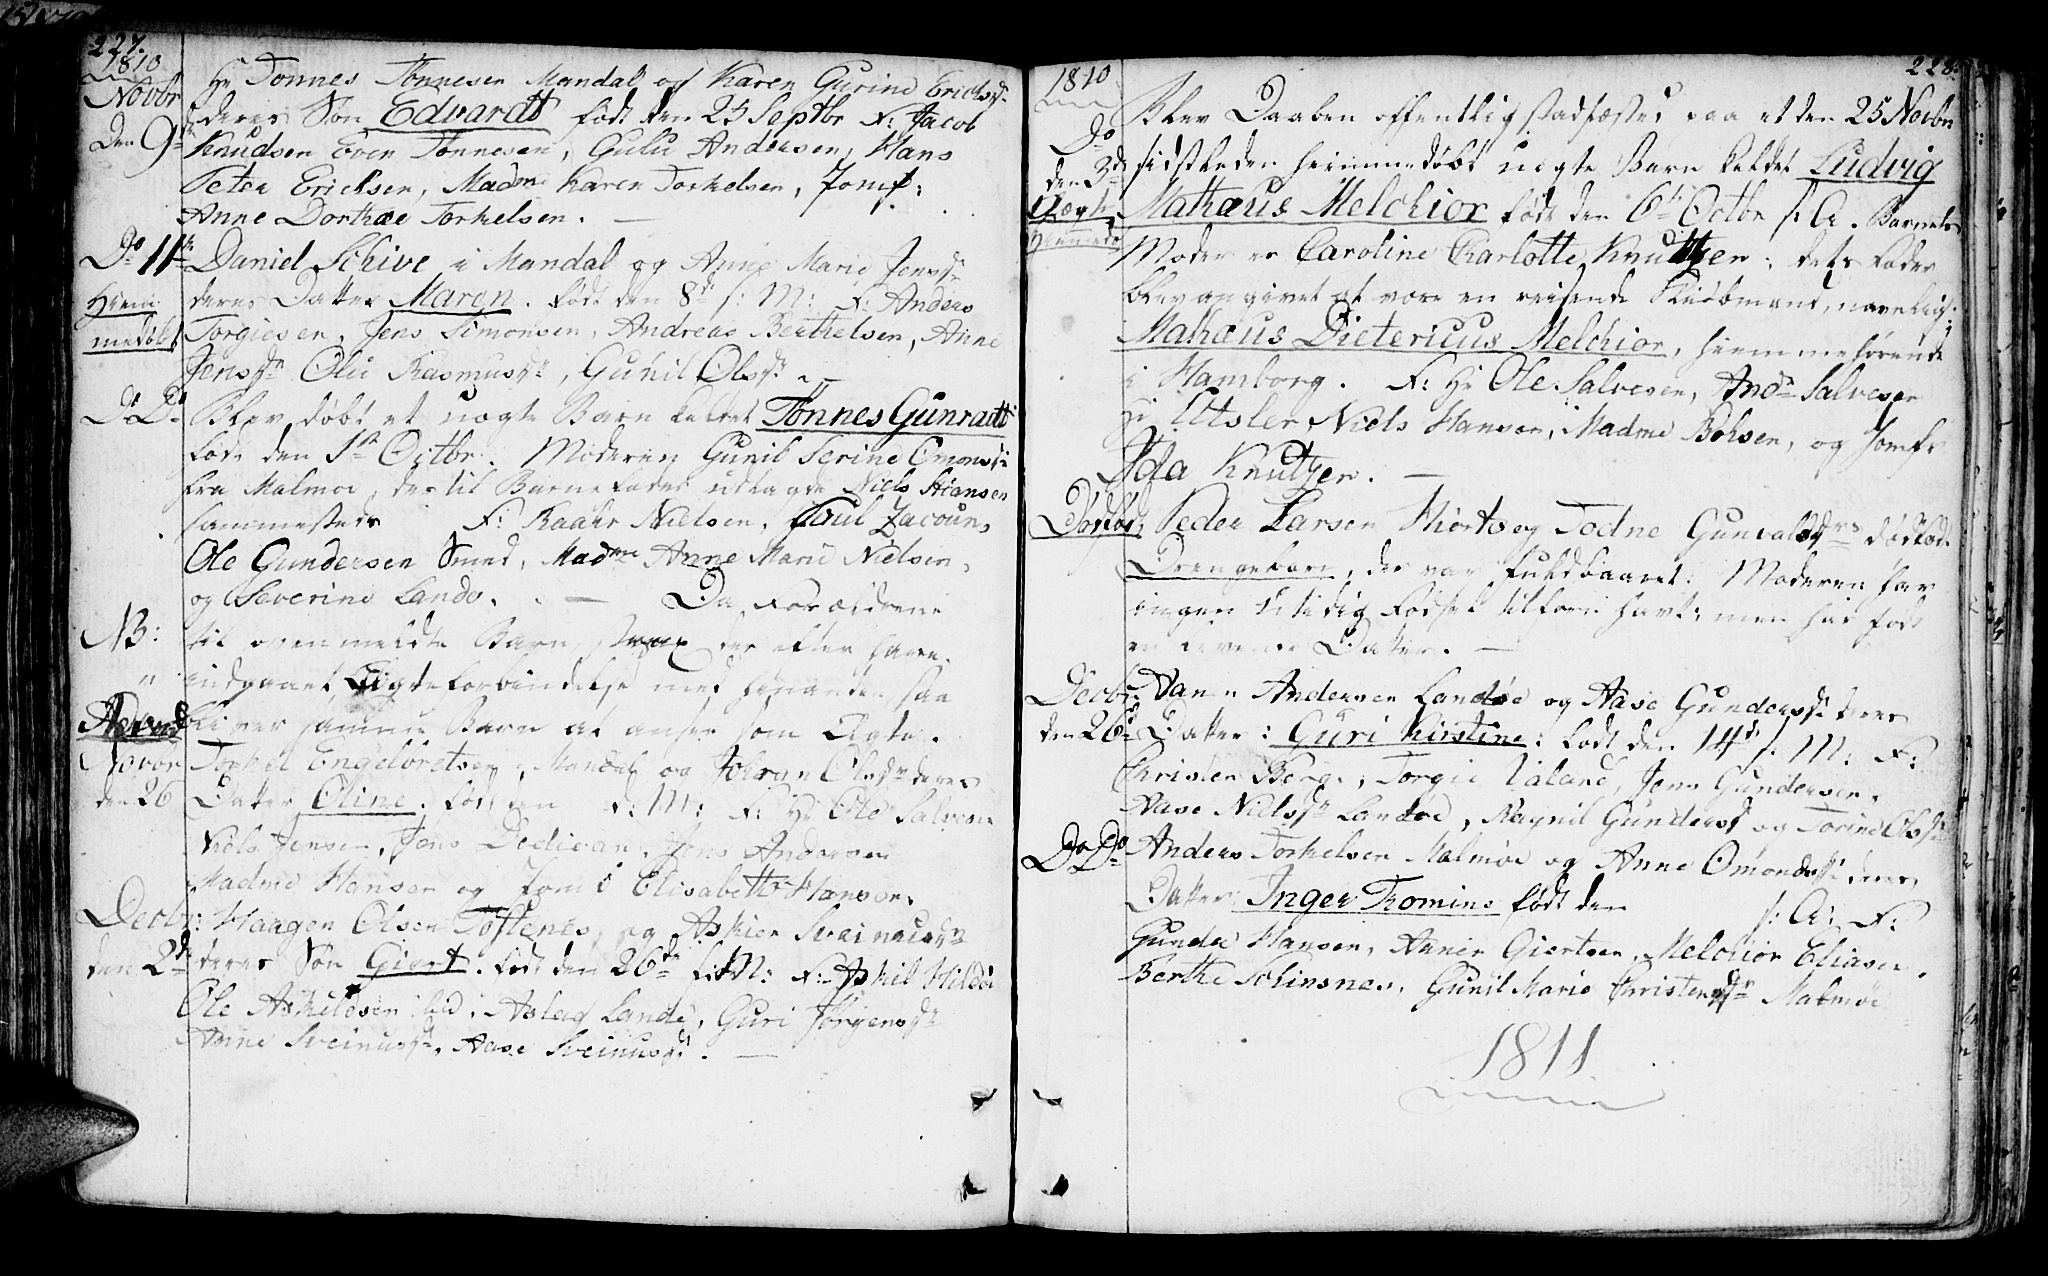 227.
1810
Novbr
Den 9de
Hr Tonnes Tönnesen Mandal og Karen Gurine Ericksd.
deres Søn Edvardt født den 25 Septbr F: Jacob
Knudsen Even Tönnesen, Gulu Andersen, Hans
Peter Ericksen, Madme Karen Torkelsen, Jomf:
Anne Dorthæe Torkelsen. —
Do 11te
Hiem
medøbt
Daniel Schive i Mandal og Anne Marie Jensdr
deres Datter Maren. født den 8de s: M: F: Anders
Torgiesen, Jens Simonsen, Andreas Berthelsen, Anne
Jensdr Olu Rasmusdr, Gunil Olsdr. —
Do Do
Blev døbt et uægte Barn kaldet Tönnes Gunradt
født den 1te Octbr. Moderen Gunil Serine Omonsd
fra Malmøe, der til Barnefader udlagde Niels Hansen
sammesteds F: Kaahr Nielsen, Poul Zacouns,
Ole Gundersen Smed, Madme Anne Marie Nielsen,
og Severine Lande. — Da Forældrene
NB:
til ovenmeldte Barn strax der efter have
indgaaet Ægteforbindelse med hinanden saa
bliver samme Barn at ansee som Ægte.
Advent
Novbr
den 26
Torkel Engelbretsen Mandal og Joran Olsdr deres
Datter Oline. født den s: M: F: Hr Ole Salvesen
Niels Jensen, Jens Andersen
Madme Hansen og Jomf Elisabeth Hansen.
Decbr:
den 2den
Haagen Olsen Tostenes, og Askier Sveinusdr
deres Søn Giert. født den 26de f: M: F: Askil Hildøe
Ole Askildsen ibid, Aslag Lande, Guri Jörgensdr
Anne Sveinusdr, Aase Sveinusdr. —
228.
1810
Do
den 3de
Uægte
Hiemmedø
Blev Daaben offentlig stadfæstet paa et den 25 Novbr
sidstleden hiemmedøbt uægte Barn kaldet Ludvig
Mathæus Melchior født den 6te Octbr s: A. Barnets
Moder er Caroline Charlotte Knutzen; dets Fader
blev angivet at være en reisende Kiøbmand, navnlig:
Mathæus Dietericus Melchior, hiemmehørende
i Hamborg. F: Hr Ole Salvesen, Andr Salvesen
Hr Utsler Niels Hansen, Madme Bohsen, og Jomfr
Ida Knutzen. —
Dødfød:
Peder Larsen Hiorto og Todne Gunvaldsdrs dødfødt
Drengebarn, der var fuldbaaret. Moderen har
ingen utidig Fødsel tilforn havt; men har født
en levende Datter. —
Decbr:
den 26de
Hans Andersen Landøe og Aase Gundersd: deres
Datter: Guri Kirstine: født den 14de s: M: F:
Christen Berge, Torgie Ualand, Jens Gundersen,
Aase Nielsdr Landøe, Ragnil Gundersd og Torine Olsd
Do Do
Anders Torkelsen Malmøe og Anne Omondsd: deres
Datter Inger Tomine født den s: A: F:
Gunder Hansen, Anner Giertsen, Melchior Eliasen.
Berthe Schinsnes, Gunil Marie Christensdr Malmøe
1811